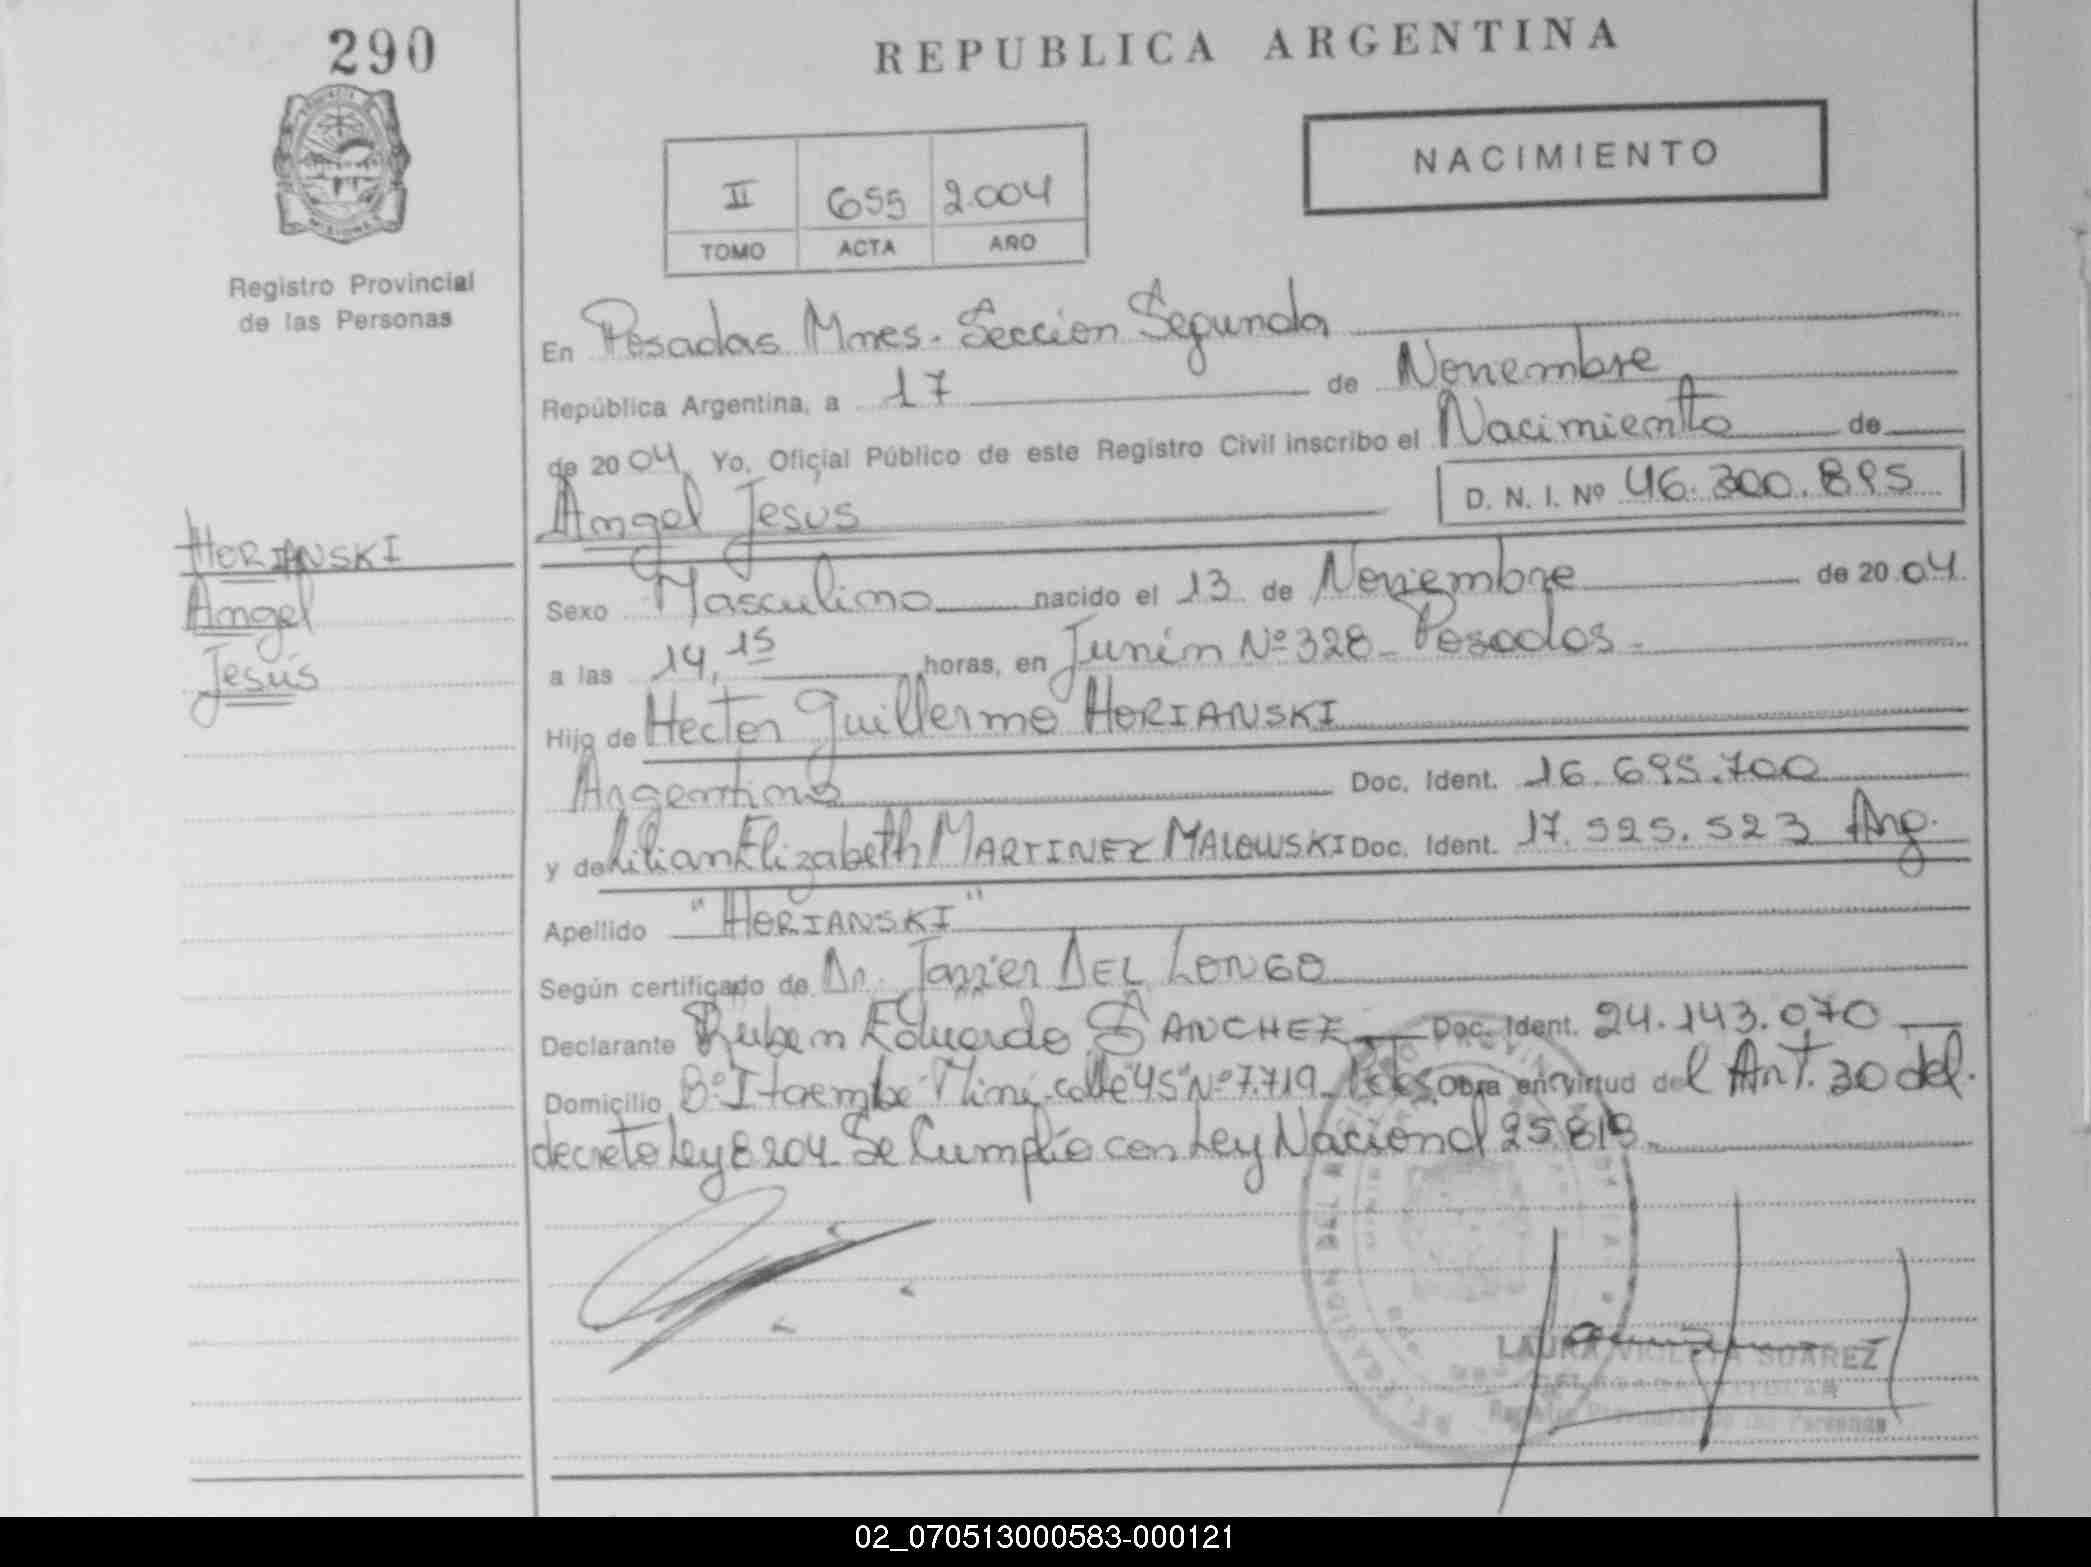 290
REPUBLICA ARGENTINA
NACIMIENTO
II 655 2.004
TOMO ACTA AÑO
Registro Provincial
de las Personas
En Posadas Mnes. Sección Segunda
República Argentina, a 17 de Noviembre
de 2004. Yo, Oficial Público de este Registro Civil inscribo el Nacimiento de
Angel Jesús
D. N. I. Nº 46.300.895
HORIANSKI
Angel
Jesús
Sexo Masculino nacido el 13 de Noviembre de 2004.
a las 14,15 horas, en Junín Nº 328 - Posadas -
Hijo de Hector Guillermo HORIANSKI
Argentino Doc. Ident. 16.695.700
y de Lilian Elizabeth MARTINEZ MALOWSKI Doc. Ident. 17.525.523 Arg.
Apellido "HORIANSKI"
Según certificado de Dr. Javier DEL LONGO
Declarante Ruben Eduardo SANCHEZ Doc. Ident. 24.143.070
Domicilio Bº Itaembé Miní - calle 45 Nº 7.719 - Pdas. Obra en virtud del Art. 30 del
decreto ley 8204. Se Cumplió con Ley Nacional 25.819.
LAURA VIOLETA SUAREZ
Registro Provincial de las Personas
02_070513000583-000121